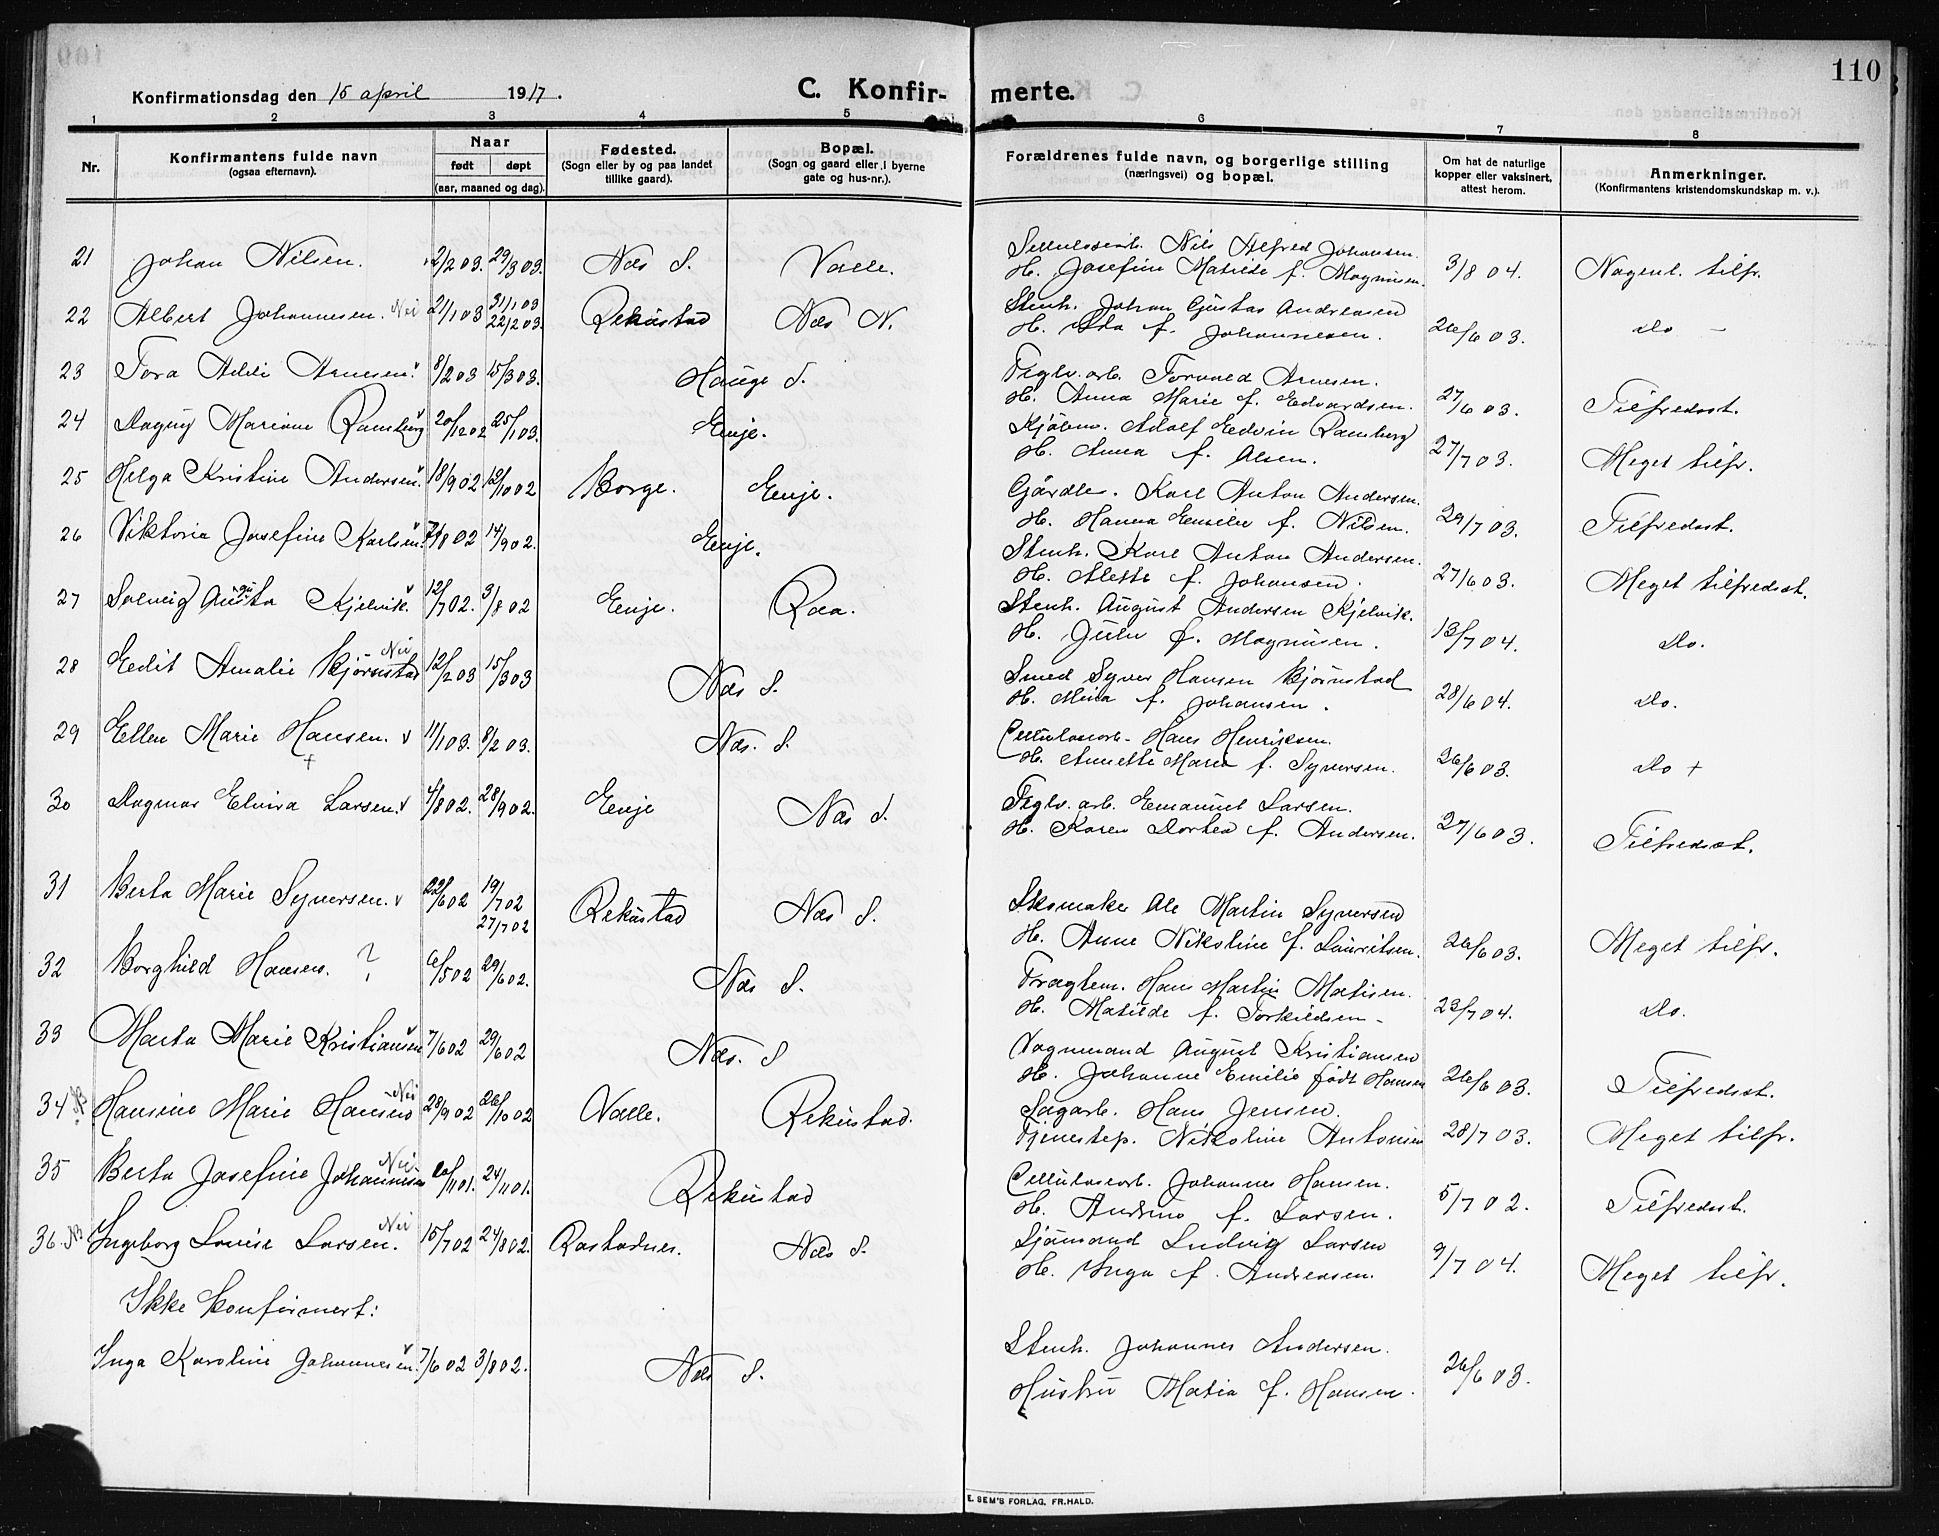 110
Konfirmationsdag den 15 april 1917.
C. Konfir-merte.
1 2 3 4 5 6 7 8
Nr.
Konfirmantens fulde navn
(ogsaa efternavn).
Naar
født døpt
(aar, maaned og dag).
Fødested.
(Sogn eller by og paa landet
tillike gaard).
Bopæl.
(Sogn og gaard eller i byerne
gate og hus-nr.).
Forældrenes fulde navn, og borgerlige stilling
(næringsvei) og bopæl.
Om hat de naturlige
kopper eller vaksinert,
attest herom.
Anmerkninger.
(Konfirmantens kristendomskundskap m. v.).
21 Johan Nilsen. 12/2 03. 29/3 03. Næs S. Valle. Cellulosearb. Nils Alfred Johansen.
H. Josefine Matilde f. Magnusen. 3/8 04. Nogenl. tilfr.
22 Albert Johannesen. Nei 21/1 03 31/1 03 22/2 03. Rekustad Næs N. Stenh. Johan Gustav Andreasen
H. Ida f. Johannesen. 26/6 03. Do –
23 Tora Arnesen. v 8/2 03 15/3 03. Hauge S. Teglv. arb. Torvald Arnesen.
H. Anna Marie f. Edvardsen. 27/6 03. Tilfredsst.
24 Dagny Mariane Ramberg v 20/12 02 25/1 03. Enje. Kjøbm. Adolf Edvin Ramberg
H. Anna f. Olsen. 27/7 03. Meget tilfr.
25 Helga Kristine Andersen. v 18/9 02 12/10 02 Borge. Enje. Gårdbr. Karl Anton Andersen.
H. Hanna Emilie f. Nilsen. 29/7 03. Tilfredsst.
26 Viktoria Josefine Karlsen. v 7/8 02 14/9 02. Enje. Stenh. Karl Anton Andersen.
H. Alette f. Johansen. 27/6 03. Meget tilfredsst.
27 Solveig Augusta Kjelvik. v 12/7 02. 3/8 02 Enje. Raa. Stenh. August Andersen Kjelvik.
H. Julie f. Magnusen. 13/7 04. Do.
28 Edit Amalie Bjørnstad Nei 12/2 03 15/3 03 Næs S. Smed Syver Hansen Bjørnstad
H. Mina f. Johansen. 28/6 04. Do.
29 Ellen Marie Hansen. v + 11/1 03. 8/2 03. Næs. S. Cellulosearb. Hans Henriksen.
H. Annette Marie f. Syversen. 26/6 03. Do +
30 Dagmar Elvira Larsen. v 4/8 02. 28/9 02. Enje Næs S. Teglv. arb. Emanuel Larsen.
H. Karen Dortea f. Andersen. 27/6 03. Tilfredsst.
31 Berta Marie Syversen. v 22/6 02 19/7 02 27/7 02 Rekustad Næs S. Skomaker Ole Martin Syversen
H. Anne Nikoline f. Lauritsen. 26/6 03. Meget tilfr.
32 Borghild Hansen. ? 6/5 02 29/6 02. Næs S. Fragtem. Hans Martin Matisen.
H. Matilde f. Torkildsen – 23/7 04. Do.
33 Marta Marie Kristiansen v 7/6 02 29/6 02 Næs. S Vognmand August Kristiansen
H. Johanne Emilie født Hansen 26/6 03. Tilfredsst.
34 Hansine Marie Hansen Nei 28/9 02 26/10 02 Valle. Rekustad. Sagarb. Hans Jensen.
Tjenestep. Nikoline Antonsen 28/7 03. Meget tilfr.
35 Berta Josefine Johannesen Nei 20/11 01. 24/11 01. Rekustad Cellulosearb. Johannes Hansen.
H. Andrine f. Larsen. 5/7 02. Tilfredsst.
36 Ingeborg Lovise Larsen. Nei 15/7 02 24/8 02. Rostadnes. Næs S. Sjømand Ludvig Larsen
H. Inga f. Andreasen. 9/7 04. Meget tilfr.
Ikke konfirmert:
Inga Karoline Johannesen. v 7/6 02 3/8 02. Næs S. Stenh. Johannes Andersen.
Hustru Matia f. Hansen. 26/6 03.
E. SEM'S FORLAG, FR.HALD.